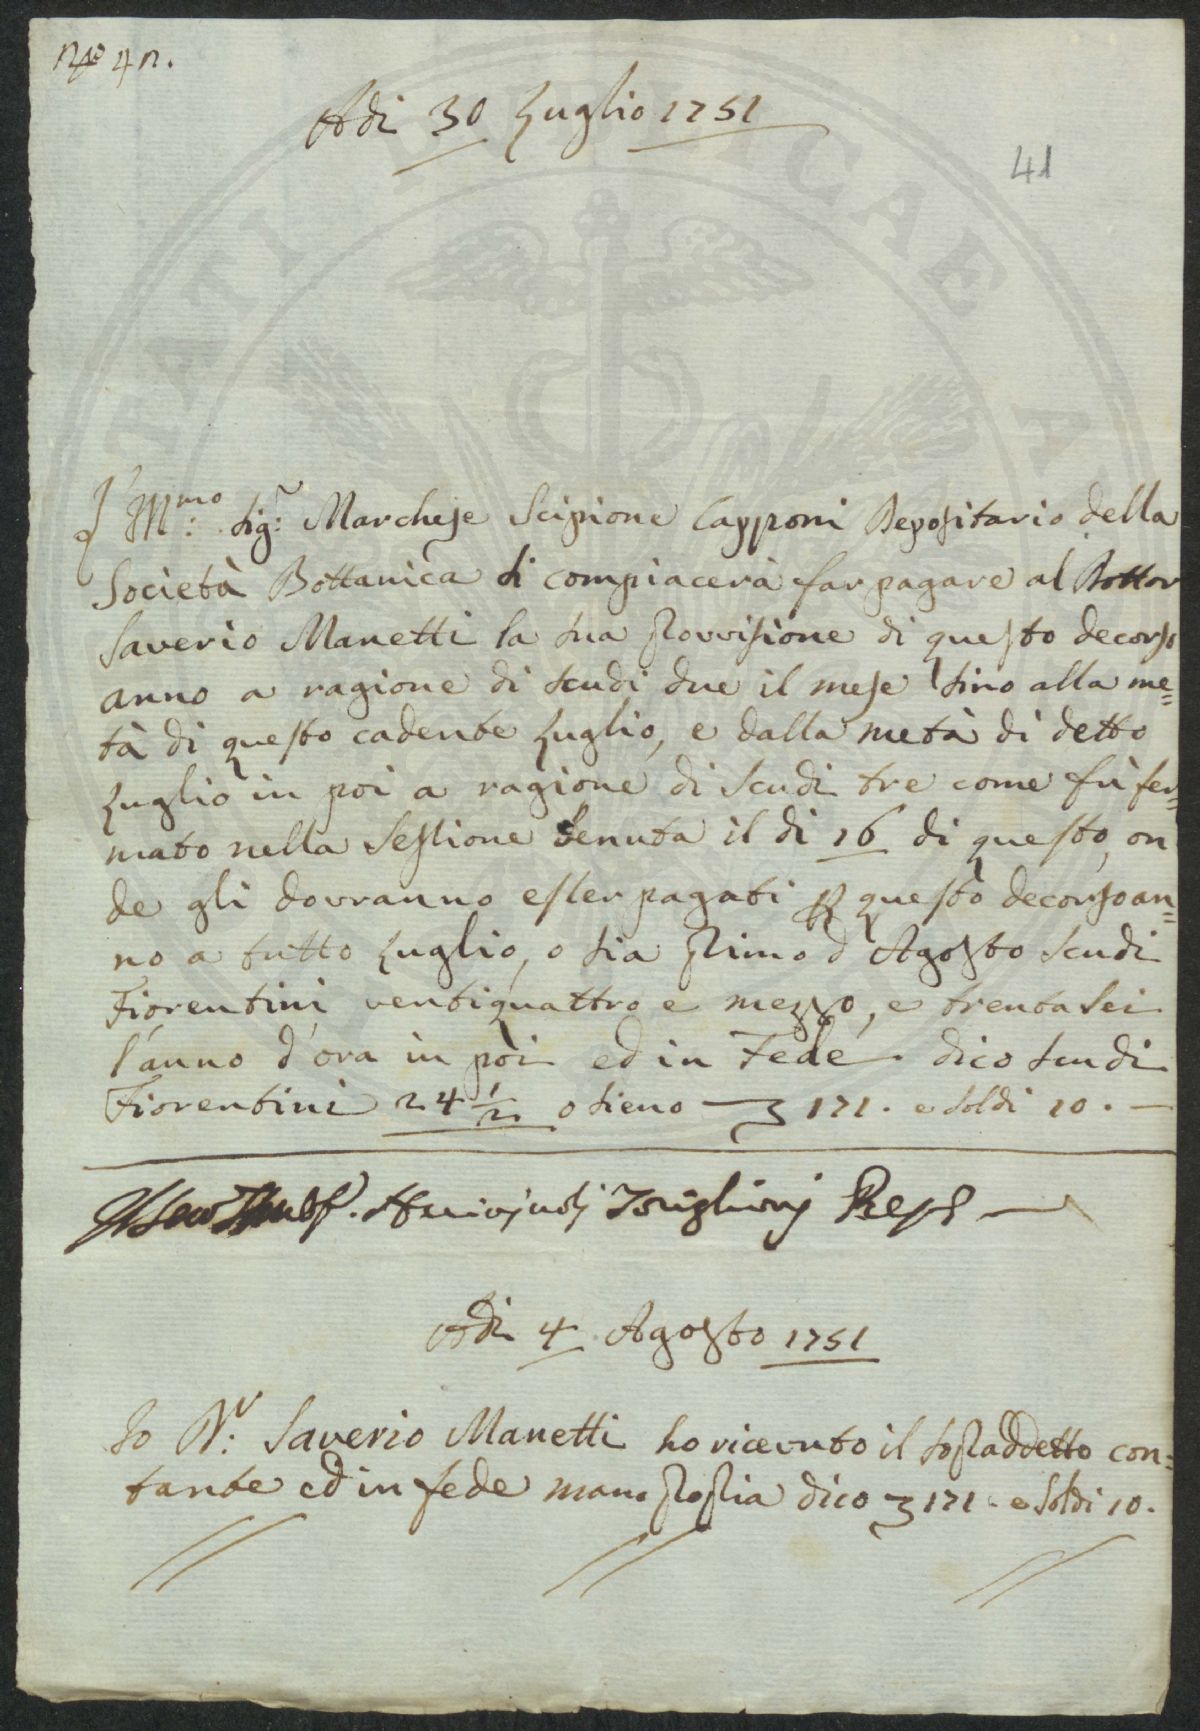 Nº 42.
Adi 30 Luglio 1751
41
L' Ill:mo Sig:r Marchese Scipione Capponi Depositario della
Società Bottanica si compiacerà far pagare al Dottor
Saverio Manetti la sua provvisione di questo decorso
anno a ragione di scudi due il mese sino alla me=
tà di questo cadente Luglio, e dalla metà di detto
Luglio in poi a ragione di Scudi tre come fù fer=
mato nella Sessione tenuta il di 16 di questo, on
de gli dovranno esser pagati p questo decorso an=
no a tutto Luglio, o sia primo d'Agosto Scudi
Fiorentini ventiquattro e mezzo, e trentasei
l'anno d'ora in poi ed in Fede. dico scudi
Fiorentini 24 1/2 o sieno 171. e soldi 10.
Adi 4 Agosto 1751
Io D:r Saverio Manetti ho ricevuto il sopraddetto con=
tante ed in fede mano propria dico 171. e Soldi 10.